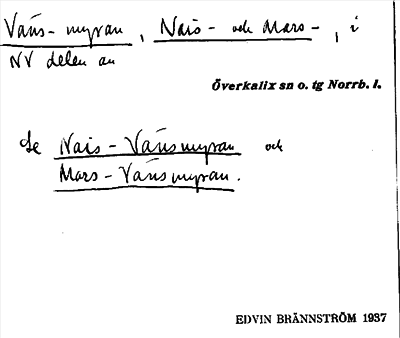 Väus-myran, Nais- och Mars-, i
NV delen av
Överkalix sn o. tg Norrb. l.
Se Nais-Väusmyran och
Mars-Väusmyran.
EDVIN BRÄNNSTRÖM 1937